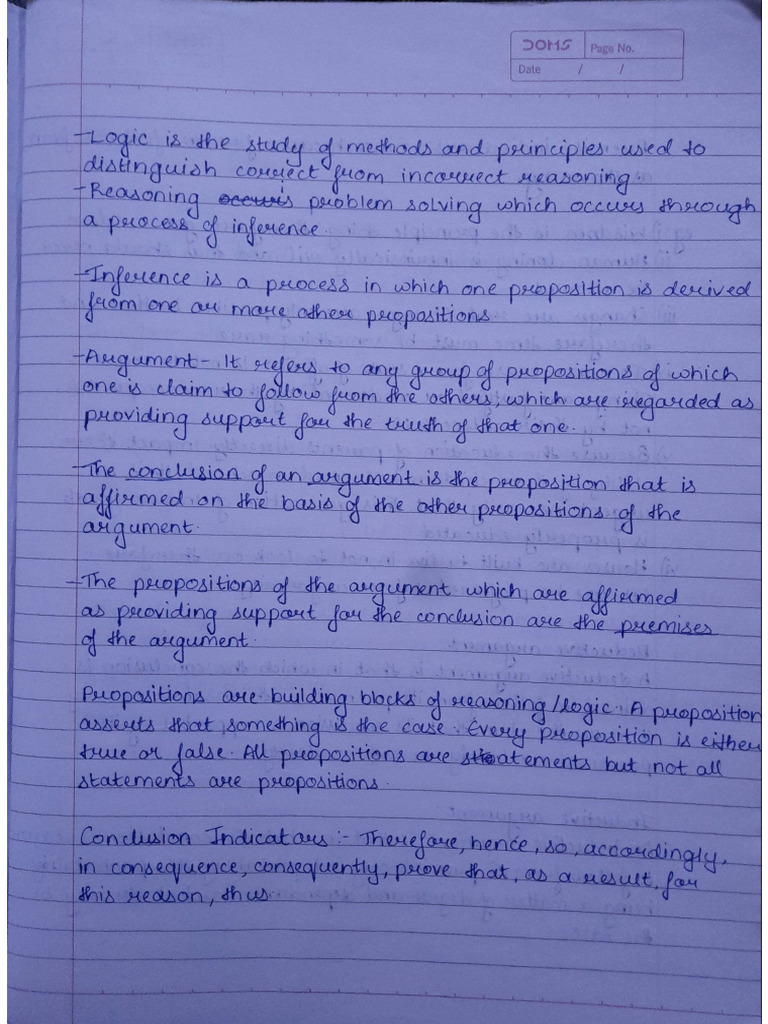 DOMS Page No.
Date / /
- Logic is the study of methods and principles used to
distinguish correct from incorrect reasoning.
- Reasoning occurs is problem solving which occurs through
a process of inference
- Inference is a process in which one proposition is derived
from one or more other propositions.
- Argument - It refers to any group of propositions of which
one is claim to follow from the others, which are regarded as
providing support for the truth of that one.
- The conclusion of an argument is the proposition that is
affirmed on the basis of the other propositions of the
argument.
- The propositions of the argument which are affirmed
as providing support for the conclusion are the premises
of the argument.
Propositions are building blocks of reasoning/logic. A proposition
asserts that something is the case. Every proposition is either
true or false. All propositions are statements but not all
statements are propositions.
Conclusion Indicators :- Therefore, hence, so, accordingly,
in consequence, consequently, prove that, as a result, for
this reason, thus.